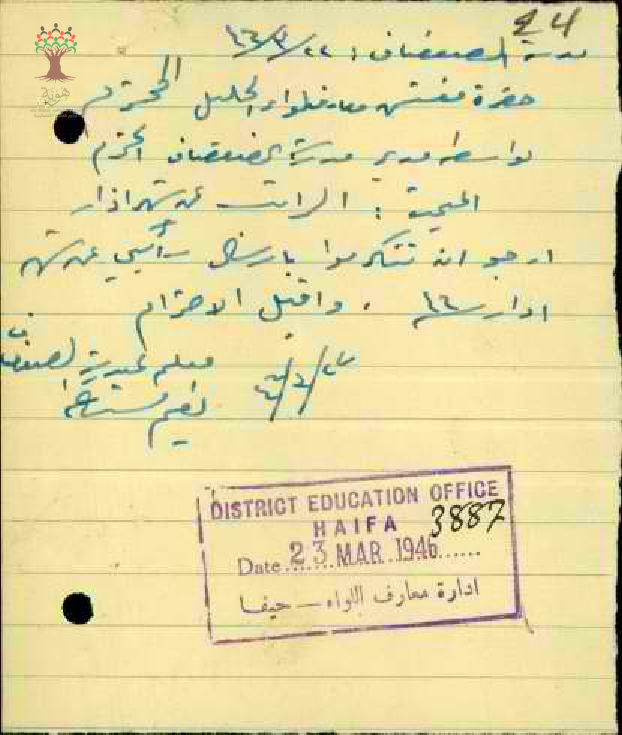 24
مدرسة الصفصاف : ٢٢/٣/٤٦
حضرة مفتش معارف لواء الجليل المحترم
بواسطة مدير مدرسة الصفصاف المحترم
: الراتب عن شهر اذار
ارجو ان تتكرموا بارسال راتبي عن شهر
اذار سنة ٤٦ . واقبل الاحترام
معلم بمدرسة الصفصاف
٢٢/٣/٤٦
نعيم
DISTRICT EDUCATION OFFICE
HAIFA 3887
Date 23 MAR 1946
ادارة معارف اللواء - حيفا